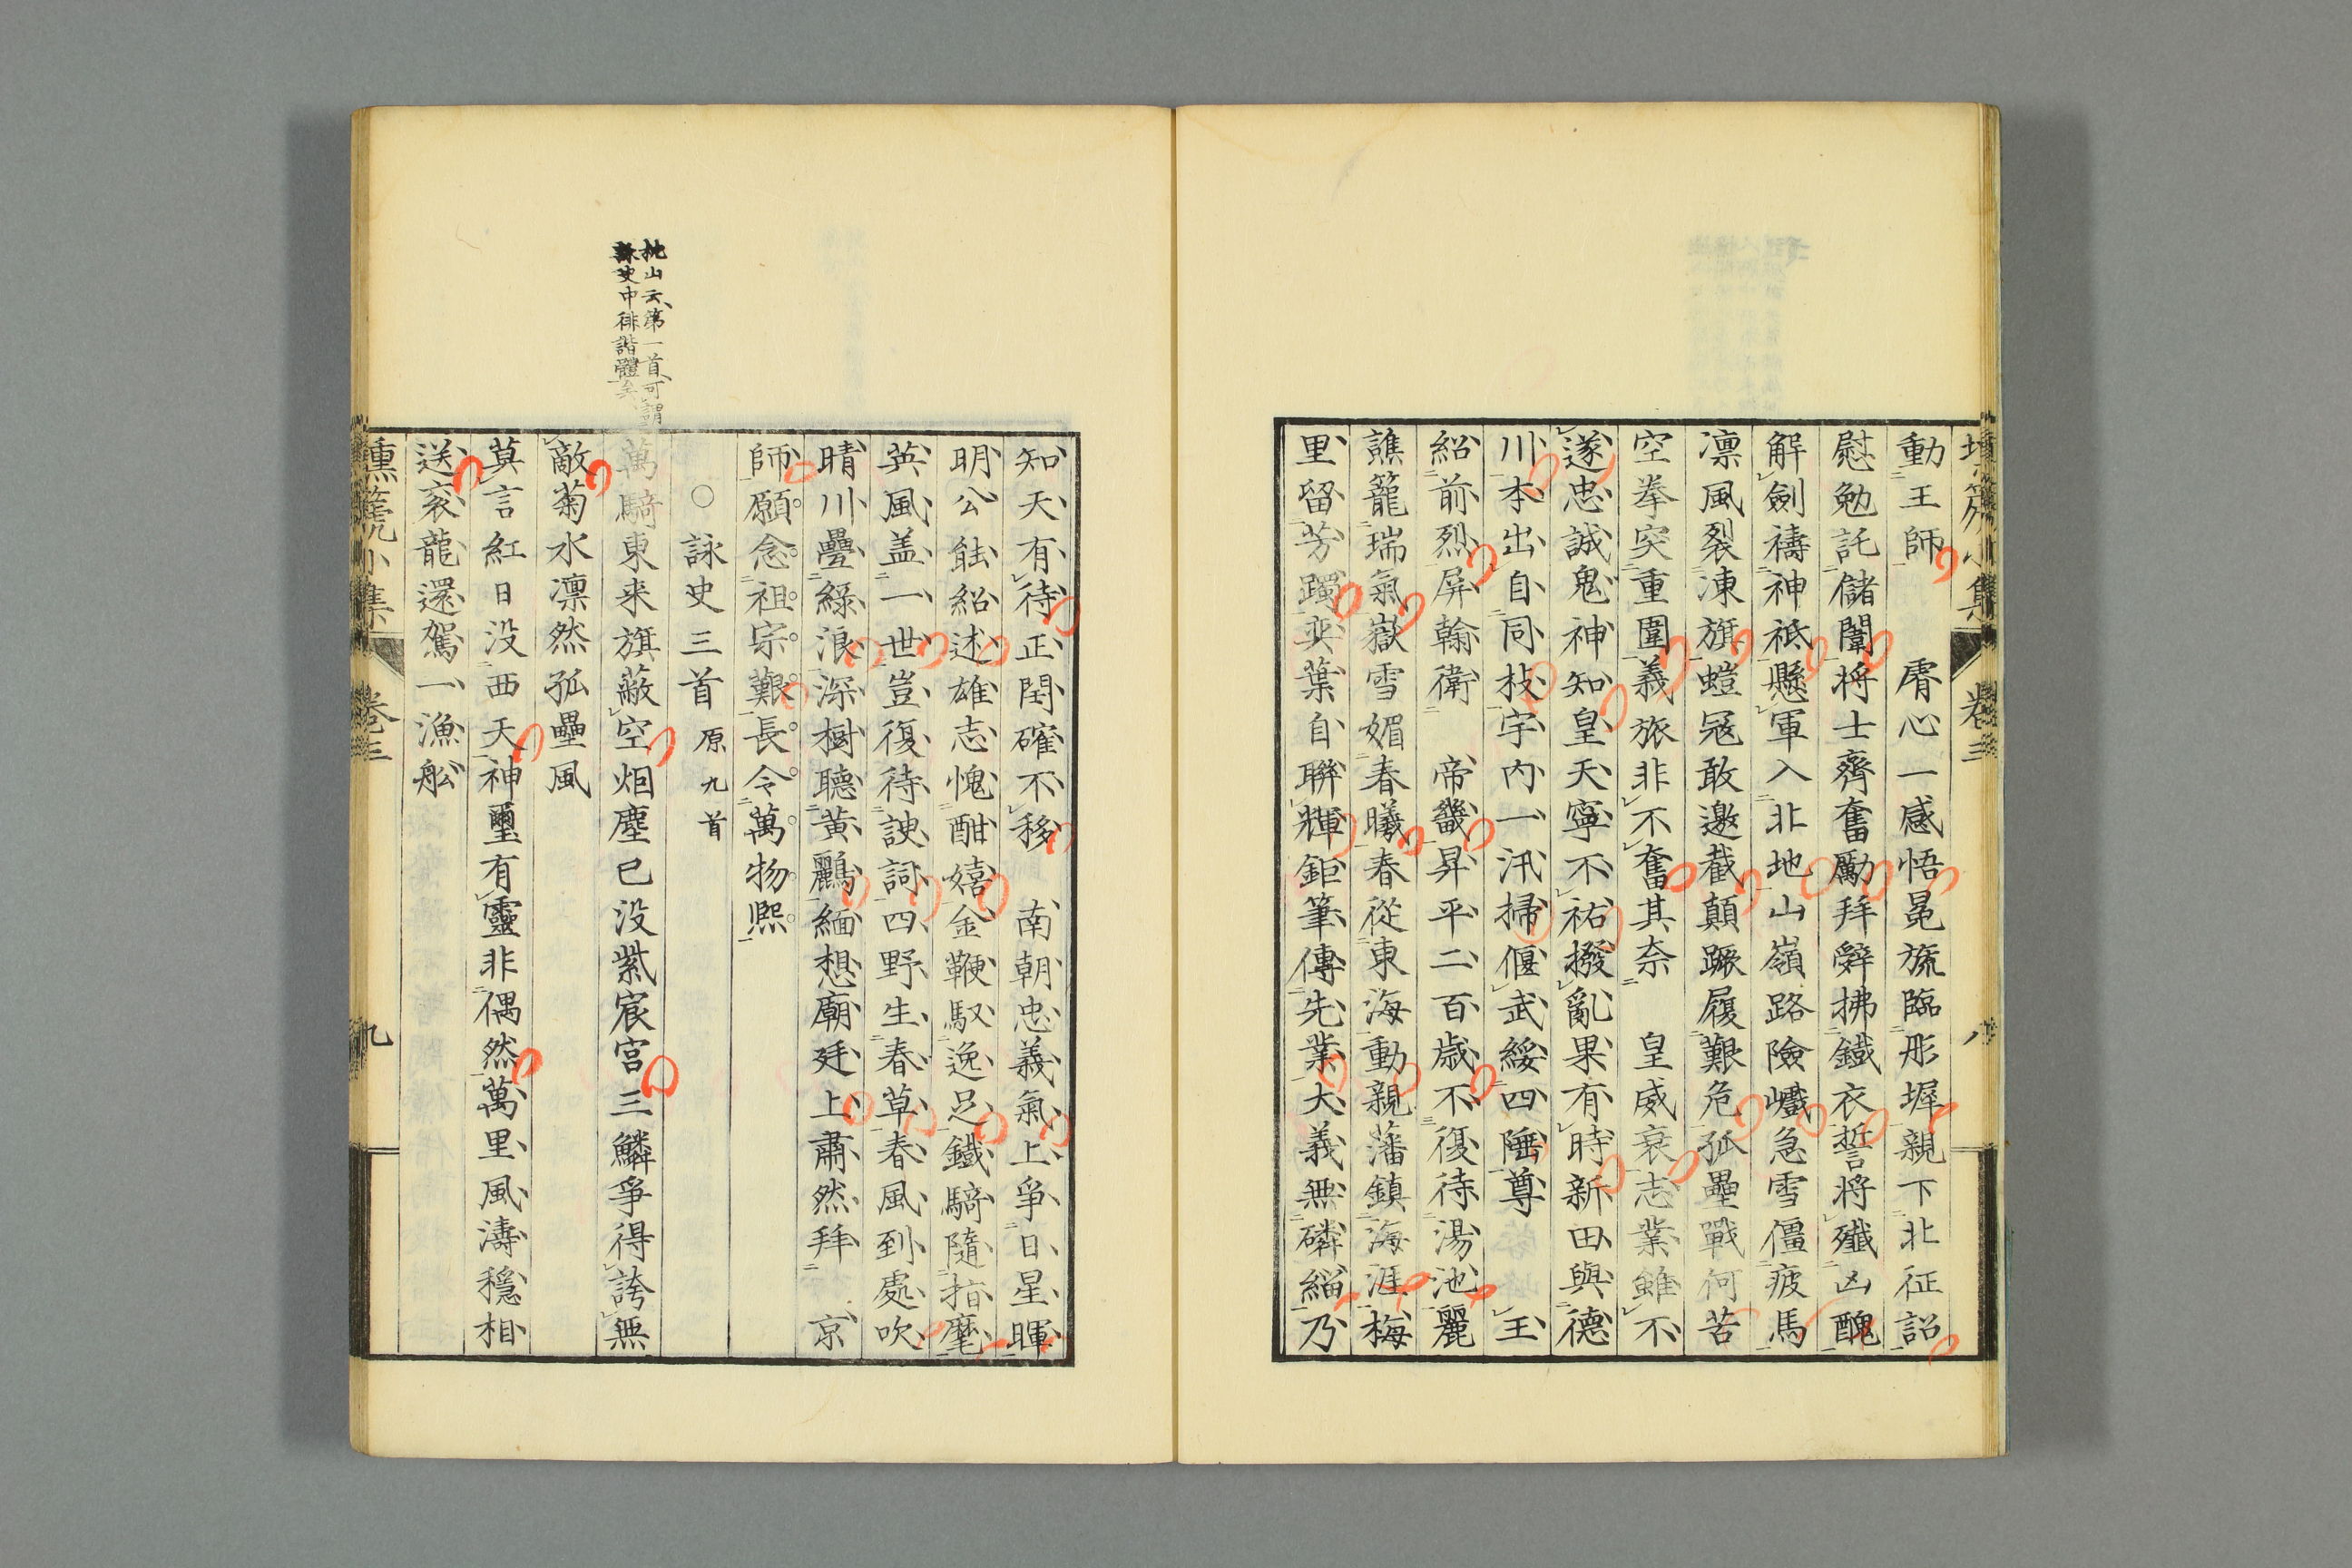 動王師　　膺心一感悟冕旒臨彤墀親下北征詔
慰勉託儲闈將士齊奮勵拜辭拂鐵衣誓將殲凶醜
解劍禱神祇懸軍入北地山嶺路險巇急雪僵疲馬
凛風裂凍旗螳冦敢邀截顛蹶履艱危孤壘戰何苦
空拳突重圍義旅非不奮其奈　皇威衰志業雖不
遂忠誠鬼神知皇天寧不祐撥亂果有時新田與德
川本出自同枝宇內一汛掃偃武綏四陲尊　　王
紹前烈屏翰衛　帝畿昇平二百歳不復待湯池麗
譙籠瑞氣嶽雪媚春曦春從東海動親藩鎮海涯梅
里留芳躅奕葉自聯輝鉅筆傳先業大義無磷緇乃
卷三
八
知天有待正閏確不移　南朝忠義氣上爭日星暉
明公能紹述雄志愧酣嬉金鞭馭逸足鐵騎隨指麾
英風盖一世豈復待諛詞四野生春草春風到處吹
晴川疊綠浪深樹聽黃鸝緬想廟廷上肅然拜　京
師願念祖宗艱長令萬物熙
○詠史三首原九首
桃山云第一首可謂
詠史中俳諧體矣
萬騎東来旗蔽空烟塵已没紫宸宮三鱗爭得誇無
敵菊水凛然孤壘風
莫言紅日没西天神璽有靈非偶然萬里風濤穩相
送衮龍還駕一漁舩
壎篪小集
卷三
九